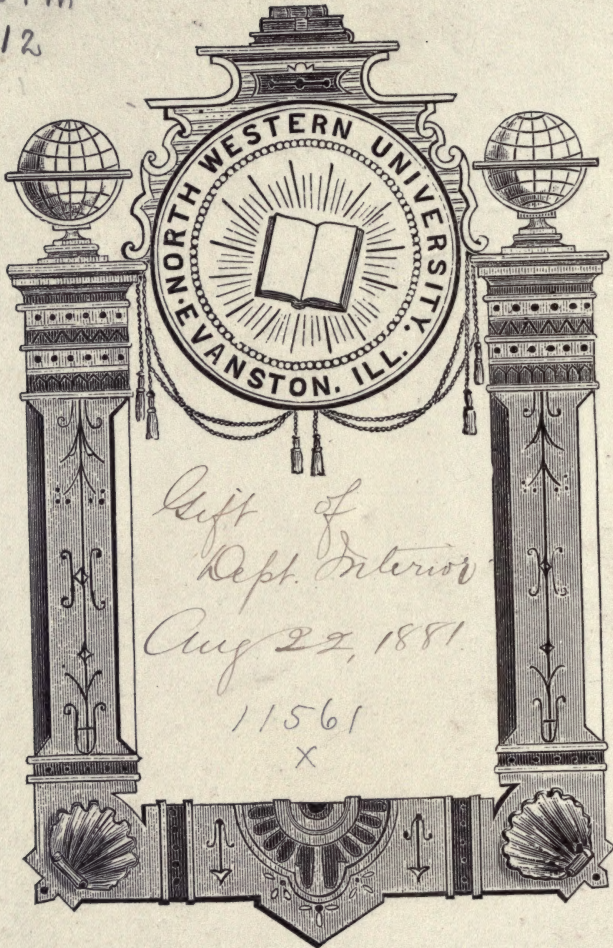 12
NORTH WESTERN UNIVERSITY.
EVANSTON. ILL.
Gift of
Dept. Interior
Aug 22, 1881.
11561
X